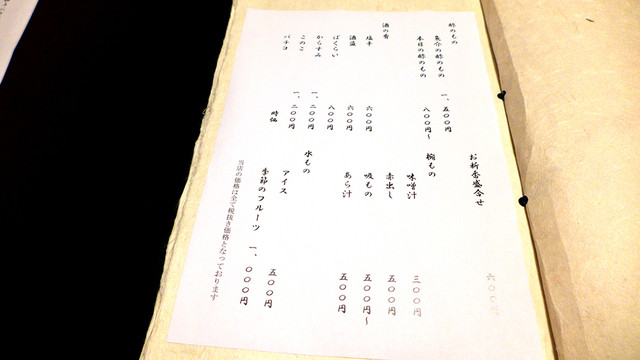 酢のもの
魚介の酢のもの 一、五〇〇円
本日の酢のもの 八〇〇円〜
酒の肴
塩辛 六〇〇円
酒盗 六〇〇円
ばくらい 八〇〇円
からすみ 一、二〇〇円
このこ 一、二〇〇円
バチコ 時価
お新香盛合せ 六〇〇円
椀もの
味噌汁 三〇〇円
赤出し 五〇〇円
吸もの 五〇〇円〜
あら汁 五〇〇円
水もの
アイス 五〇〇円
季節のフルーツ 一、〇〇〇円
当店の価格は全て税抜き価格となっております